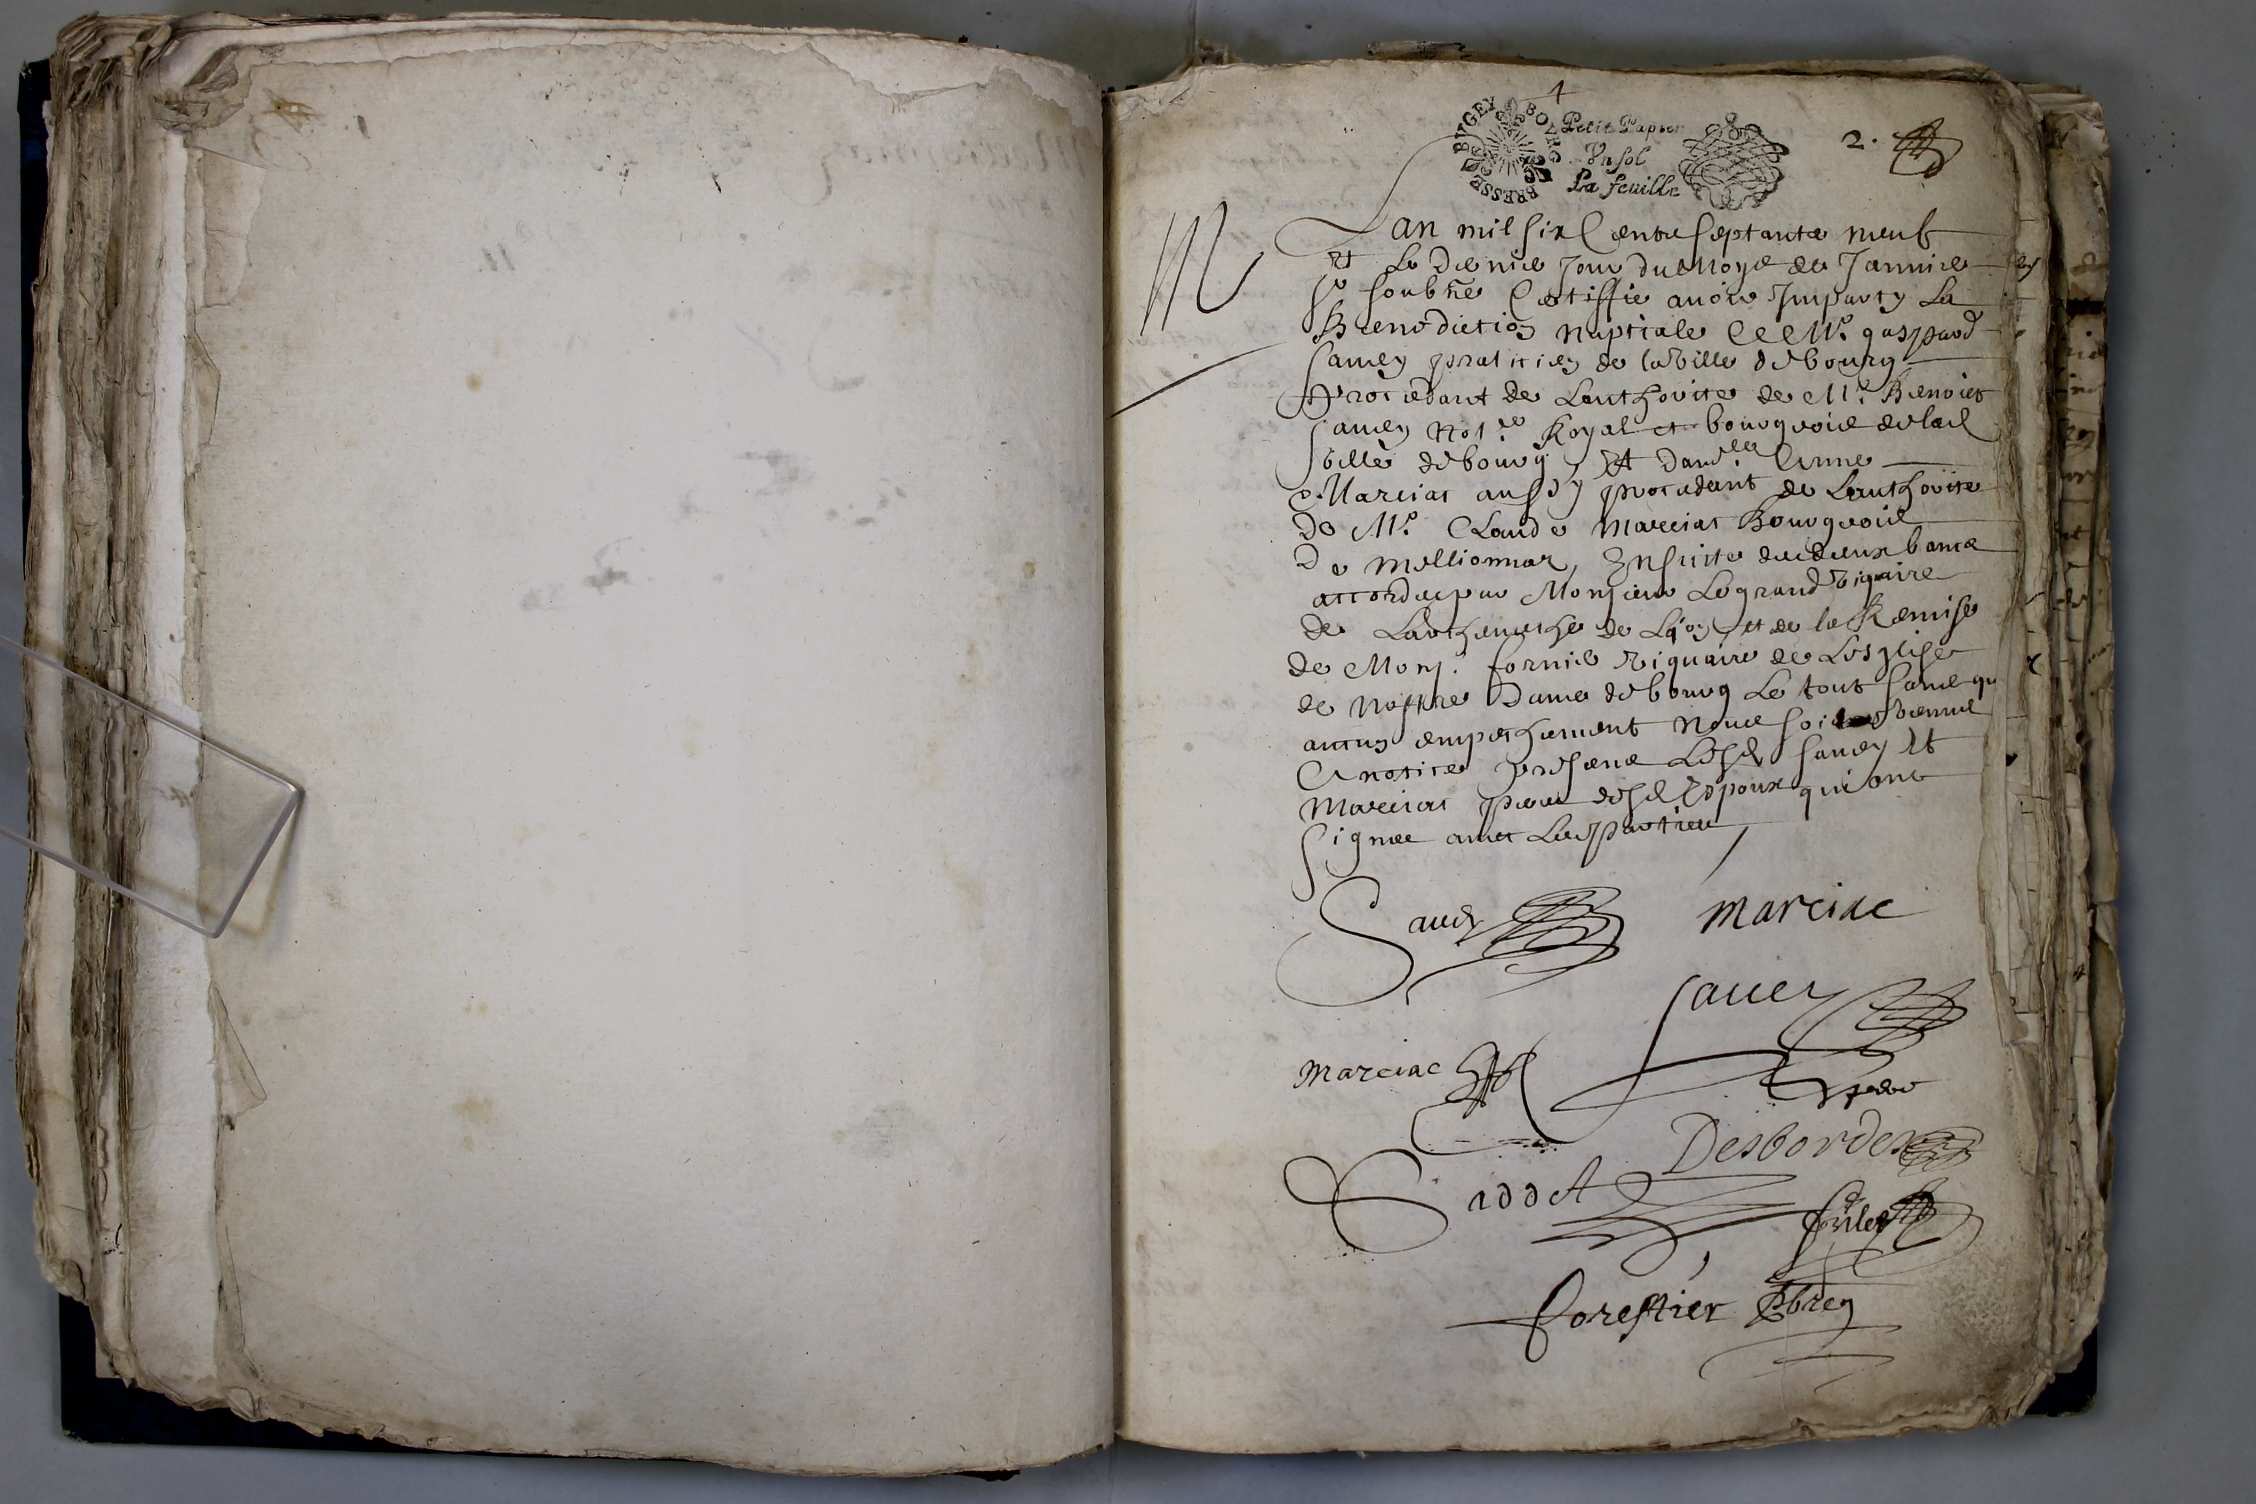 1
BOURG BRESSE BVGEY
Petit Papier
Vn sol
La feuille
2.
M
Lan mil six Cents septante neuf
et Le dernier Jour du Moys de Janvier
Je soubne Certiffie avoir Imparty La
Benediction nuptiale A Mr. gaspard
Savey praticien de la ville de bourg
procedant de Lauthorite de Mr. Benoict
Savey Notre Royal et bourgeois de lad
ville de bourg, Et damlle Anne
Marciac aussy procedant de Lauthorite
De Mr. Claude Marciac Bourgeois
De Mellionnas, Ensuitte des deux bancs
accordes par Monsieur Le grand viquaire
de Larchevesche de Lion, et de la Remise
de Monsr. fornier viquaire de Lesglise
de Nostre Dame de bourg Le tout sans qu
aucun empeschement nous soit venu
A notice presens Lesd Savey Et
Marciac peres desd Espoux qui ont
Signes avec Les parties
Savey
Marciac
Savey
Marciac
Desbordes
forestier